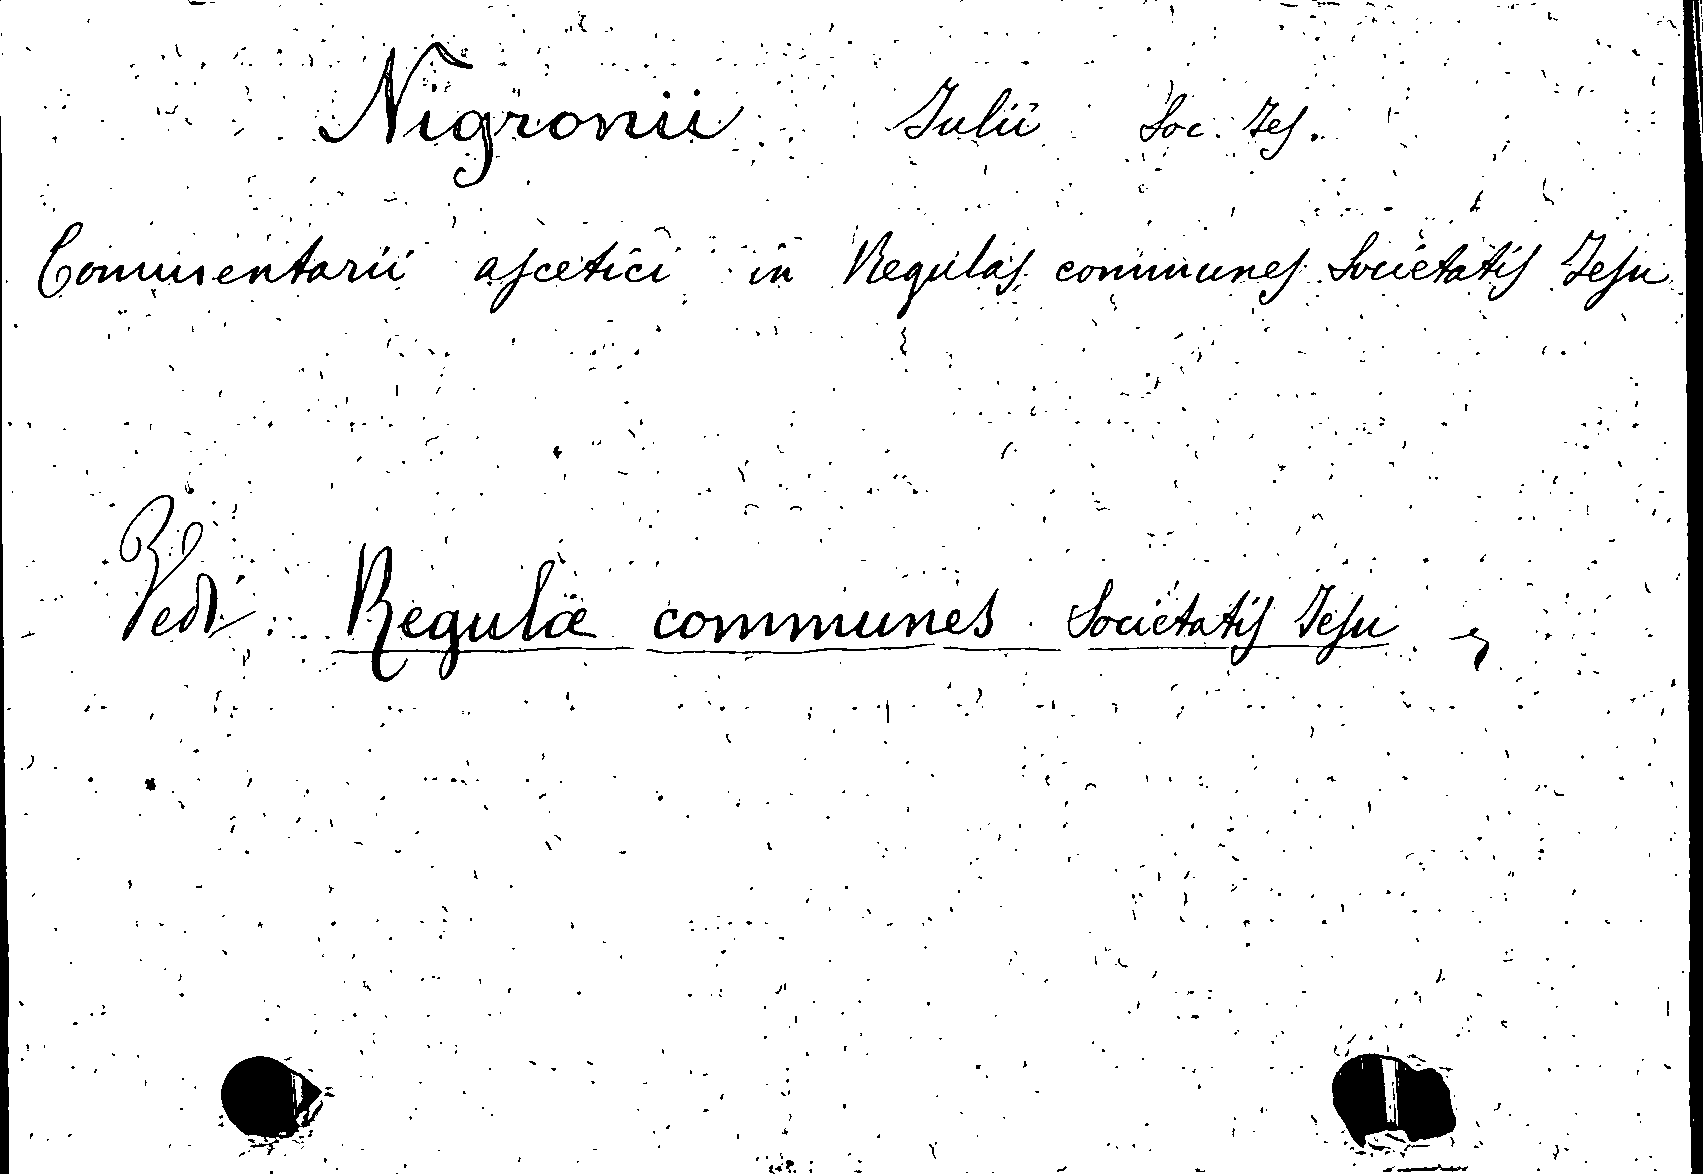 Nigronii Julii Soc. Jes.
Commentarii ascetici in Regulas communes Societatis Jesu
Vedi: Regulæ communes Societatis Jesu